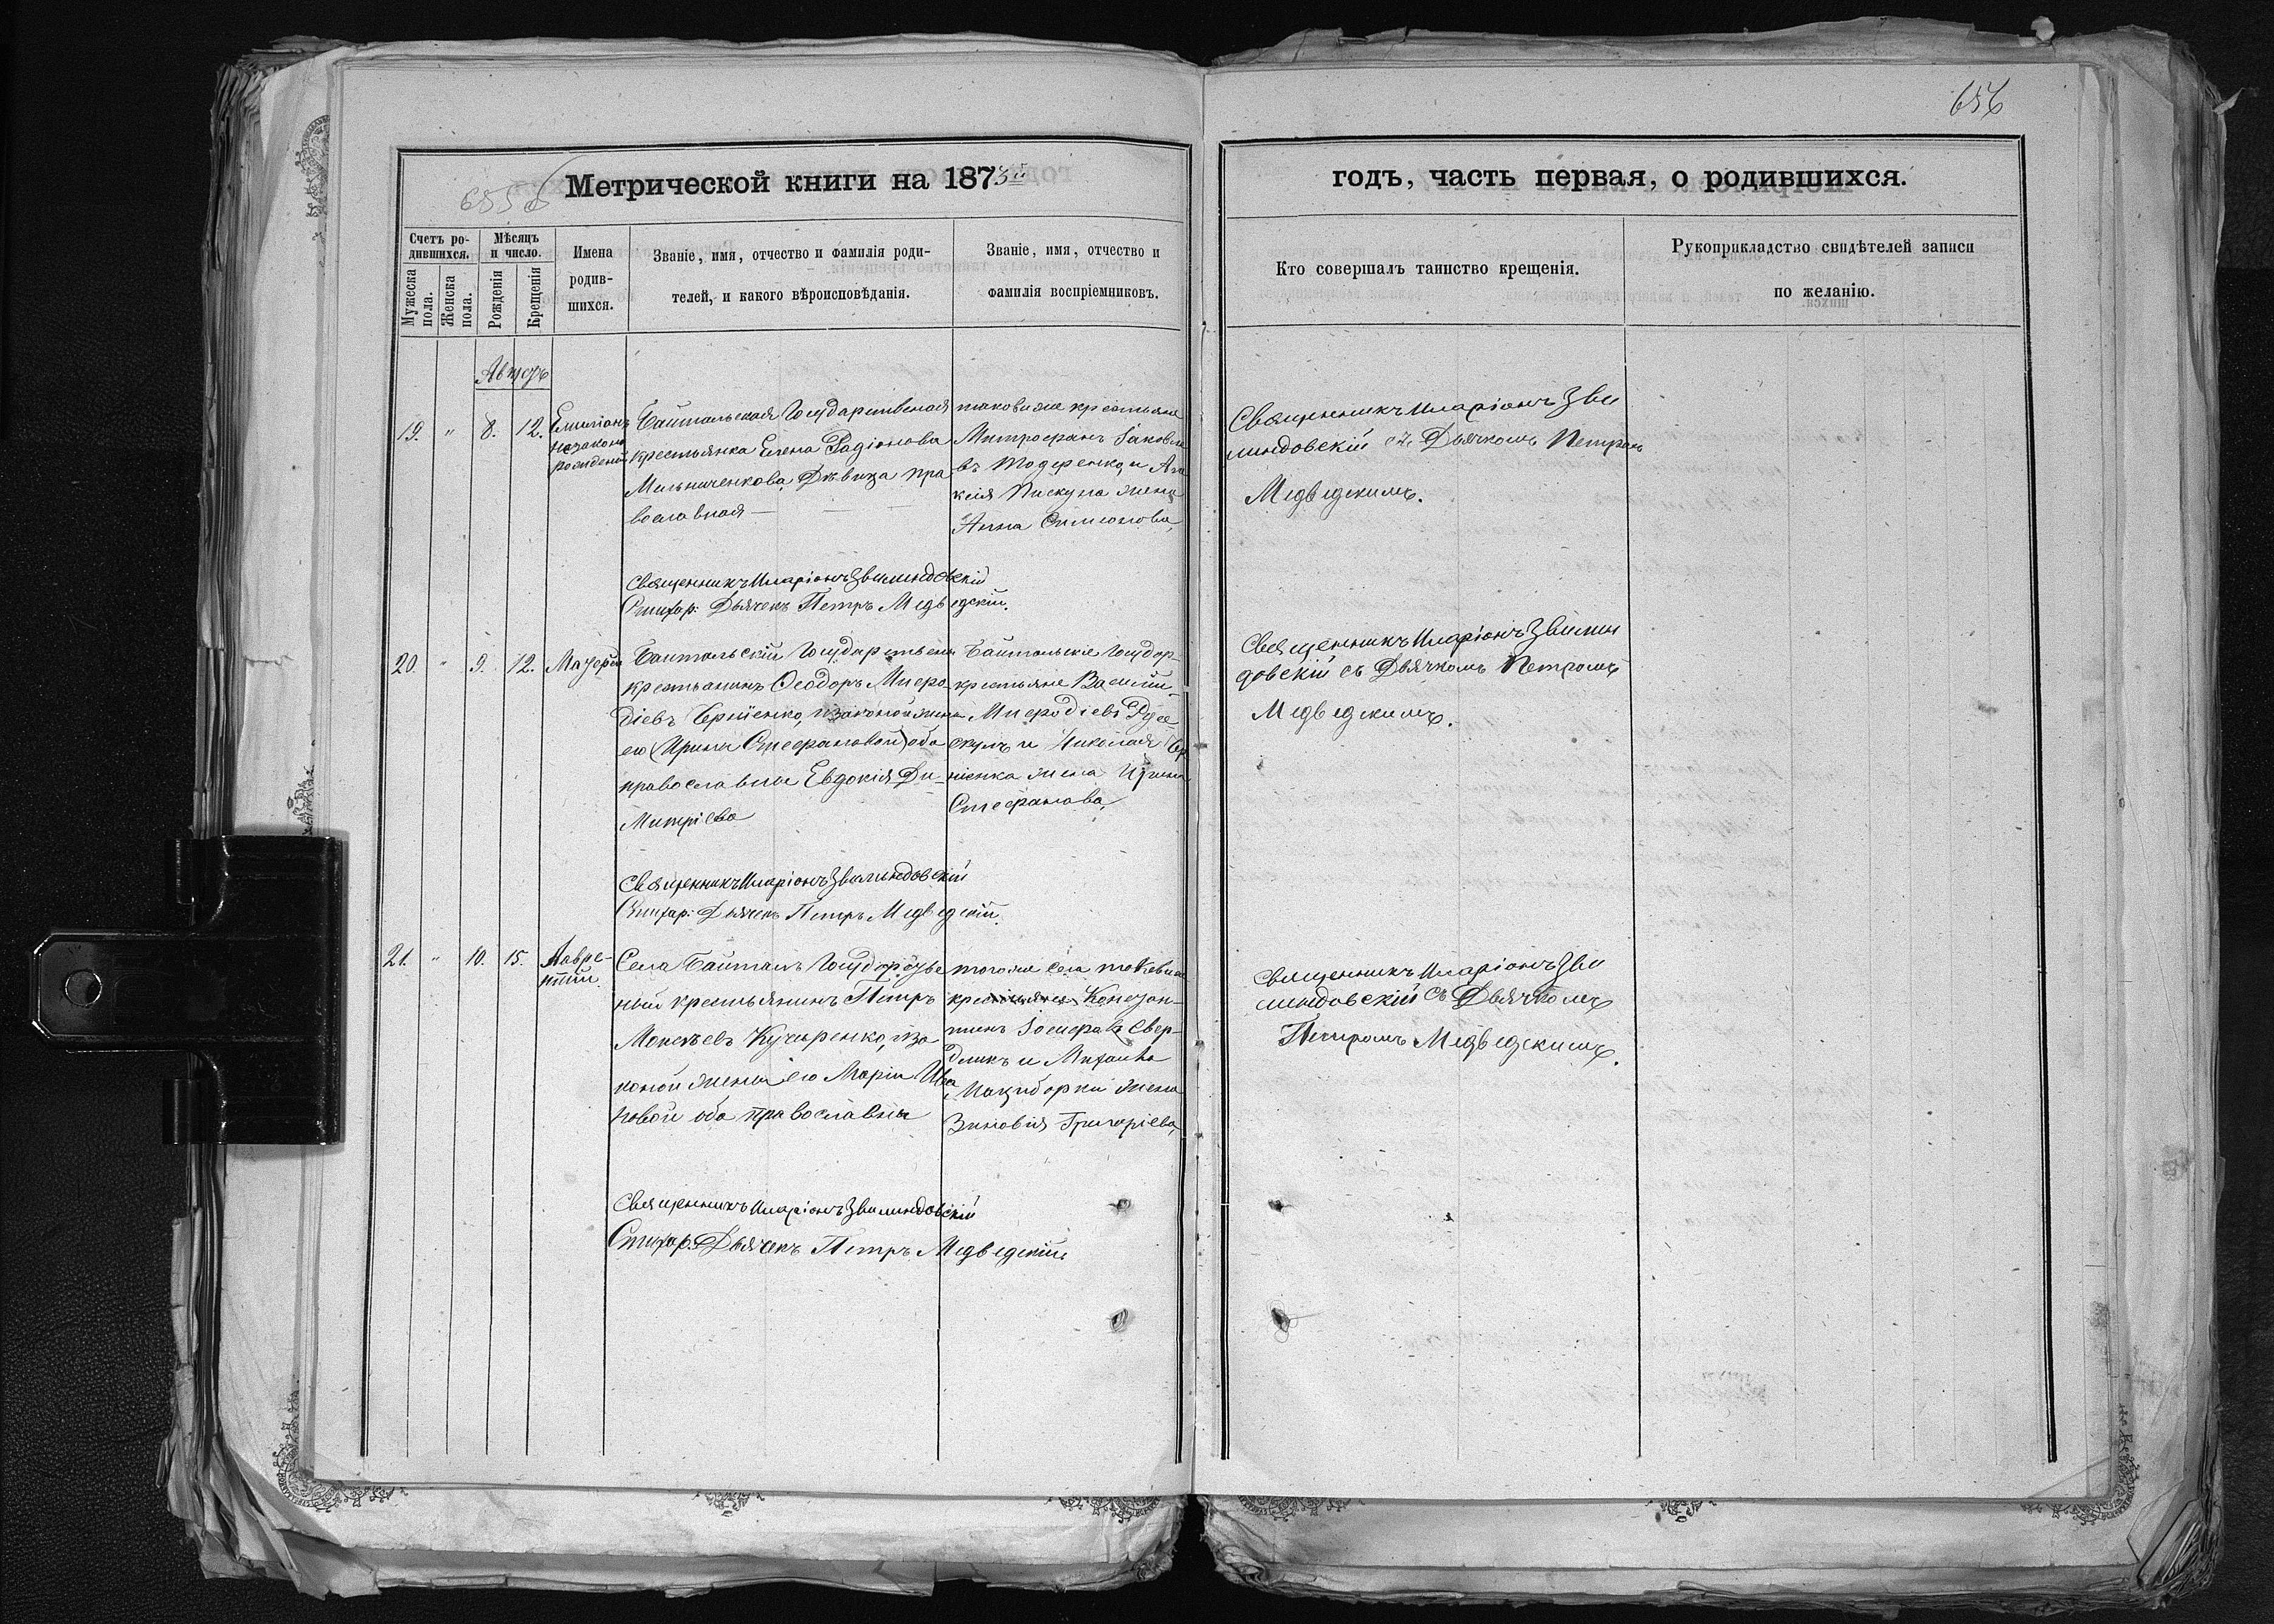 656
Метрической книги на 1873й
годъ, часть первая, о родившихся.
Счетъ ро-
дившихся.
Мужеска пола.
Женска пола.
Мѣсяцъ
и число.
Рожденія
Крещенія
Имена
родив-
шихся.
Званіе, имя, отчество и фамилія роди-
телей, и какого вѣроисповѣданія.
Званіе, имя, отчество и
фамилія воспріемниковъ.
Кто совершалъ таинство крещенія.
Рукоприкладство свидѣтелей записи
по желанію.
Августъ
19. " 8. 12.
Емиліанъ
незаконо
рожденый
Байтальская Государственая
крестьянка Елена Радіонова
Мельниченкова, Дѣвица пра
вославная
таковіже крестьяне
Митрофанъ Іаковле
въ Тодеренко, и
Пискуна жена
Анна Симіонова
Священникъ Иларіонъ Зви
линдовскій съ Дьячкомъ Петромъ
Медведскимъ.
Священникъ Иларіонъ Звилиндовскій
Стихар: Дьячекъ Петръ Медведскій.
20 " 9. 12.
Байтальскій Государствены
крестьанинъ Ѳеодоръ Мифо
діевъ Сергіенко, изаконой жены
его (Ирины Стефановой) оба
православны Евдокія Ди-
митріева
Байтальскіе Государ-
крестьяне Василій
Мифодіевъ
и Николая Сер
гіенка жена Ирина
Стефанова,
Священникъ Иларіонъ Звилин
довскій съ Дьячкомъ Петромъ
Медведскимъ.
Священникъ Иларіонъ Звилиндовскій
Стихар: Дьячекъ Петръ Медведскій.
21. " 10. 15.
Лавре-
нтій.
Села Байталъ Государстве
ный крестьянинъ Петръ
Мокіевъ Кучеренко, иза
коной жены его Маріи Ива
новой оба православны
тогоже села таковіже
крестьяне Констан-
тинъ Іосифовъ Свер-
дликъ и Михаила
жена
Зиновія Григоріева,
Священникъ Иларіонъ Зви
линдовскій съ Дьячкомъ
Петромъ Медведскимъ.
Священникъ Иларіонъ Звилиндовскій
Стихар: Дьячекъ Петръ Медведскій